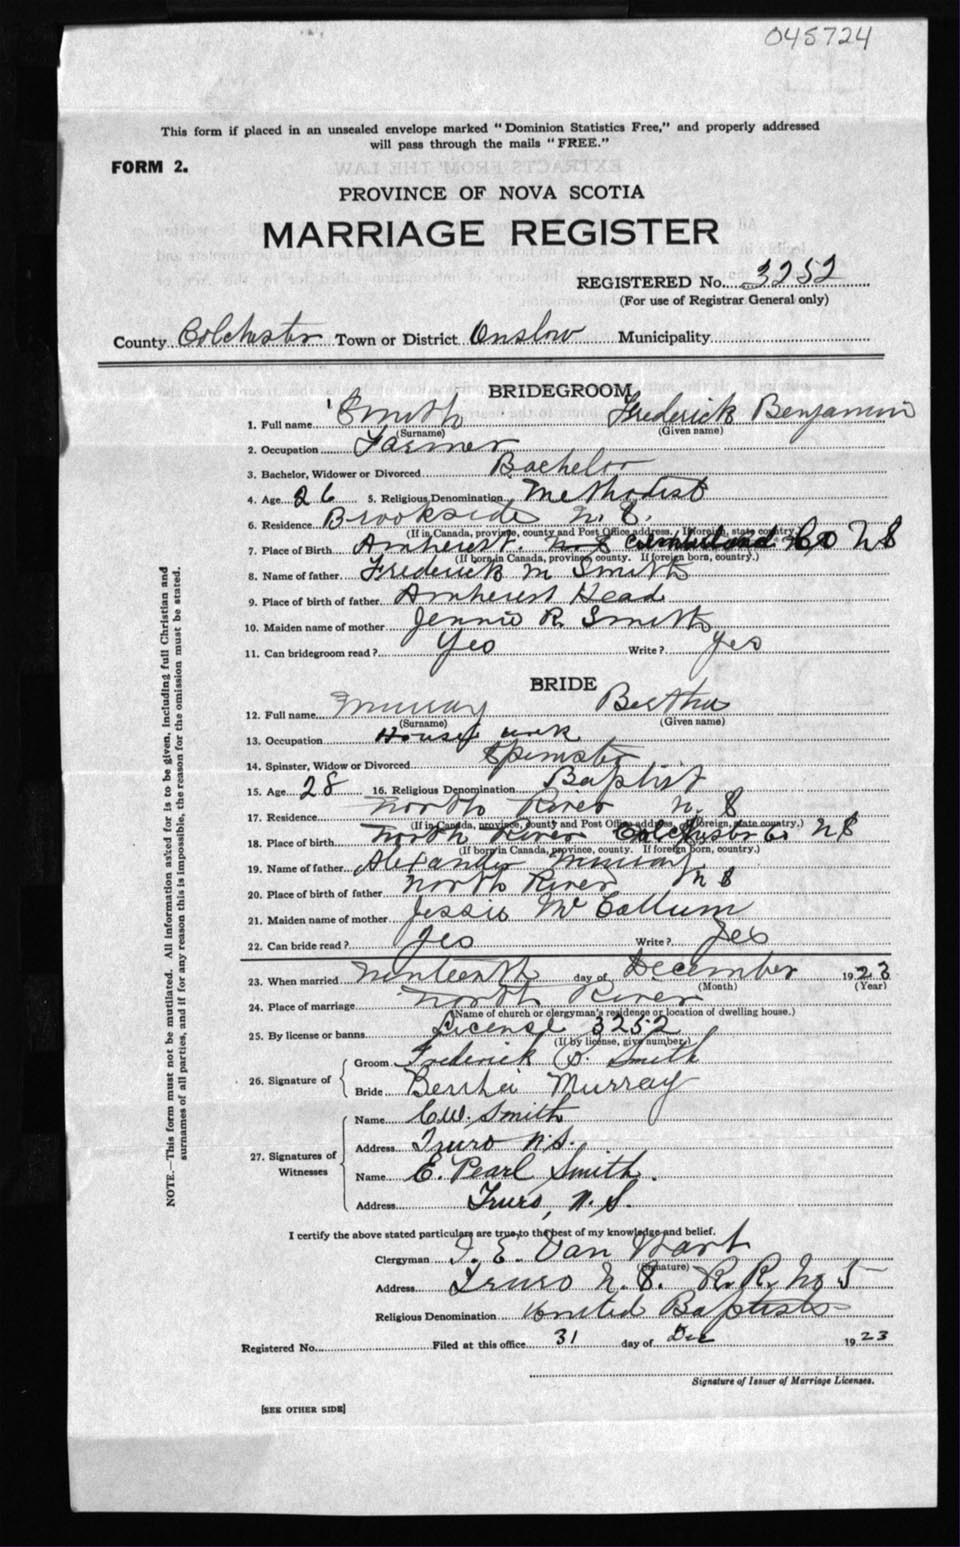 045724
This form if placed in an unsealed envelope marked "Dominion Statistics Free," and properly addressed
will pass through the mails "FREE."
FORM 2.
PROVINCE OF NOVA SCOTIA
MARRIAGE REGISTER
REGISTERED No. 3252
(For use of Registrar General only)
County Colchester Town or District Onslow Municipality
BRIDEGROOM
1. Full name Smith Frederick Benjamin
(Surname) (Given name)
2. Occupation Farmer
3. Bachelor, Widower or Divorced Bachelor
4. Age 26 5. Religious Denomination Methodist
6. Residence Brookside N.S.
(If in Canada, province, county and Post Office address. If foreign, state country.)
7. Place of Birth Amherst. N.S Cumberland Co NS
(If born in Canada, province, county. If foreign born, country.)
8. Name of father Frederick M Smith
9. Place of birth of father Amherst Head
10. Maiden name of mother Jennie R. Smith
11. Can bridegroom read? Yes Write? Yes
BRIDE
12. Full name Murray Bertha
(Surname) (Given name)
13. Occupation House work
14. Spinster, Widow or Divorced Spinster
15. Age 28 16. Religious Denomination Baptist
17. Residence North River N.S
(If in Canada, province, county and Post Office address. If foreign, state country.)
18. Place of birth North River Colchester Co NS
(If born in Canada, province, county. If foreign born, country.)
19. Name of father Alexander Murray
20. Place of birth of father North River N S
21. Maiden name of mother Jessie McCallum
22. Can bride read? Yes Write? Yes
23. When married Ninteenth day of December 1923
(Month) (Year)
24. Place of marriage North River
(Name of church or clergyman's residence or location of dwelling house.)
25. By license or banns License 3252
(If by license, give number.)
26. Signature of
Groom Frederick B. Smith
Bride Bertha Murray
27. Signatures of Witnesses
Name C.W. Smith
Address Truro N.S.
Name E. Pearl Smith.
Address Truro, N.S.
I certify the above stated particulars are true to the best of my knowledge and belief.
Clergyman I. E. Van Wart
(Signature)
Address Truro N.S. R.R. No 5
Religious Denomination United Baptists
Registered No. Filed at this office 31 day of Dec 1923
Signature of Issuer of Marriage Licenses.
[SEE OTHER SIDE]
NOTE.—This form must not be mutilated. All information asked for is to be given, including full Christian and
surnames of all parties, and if for any reason this is impossible, the reason for the omission must be stated.